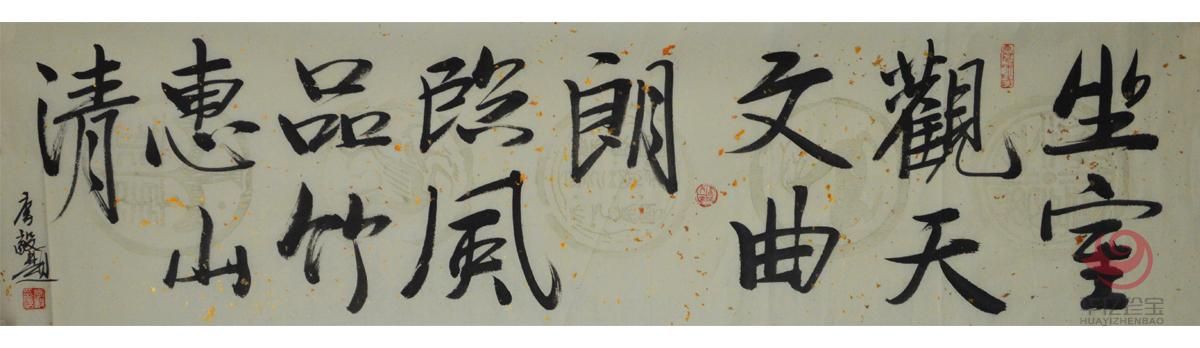 坐室
觀天
文曲
朗
臨風
品竹
惠山
清
唐毅題
华亿珍宝
HUAYIZHENBAO